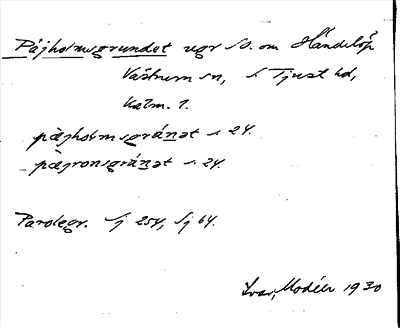 Påjholmsgrundet ugr SO. om Händelöp
Västrum sn, S Tjust hd,
Kalm. l.
påjholmsgránət s 24.
påjronsgránət s. 24.
Parolegr. Sj 254, Sj 64.
Ivar Modéer 1930